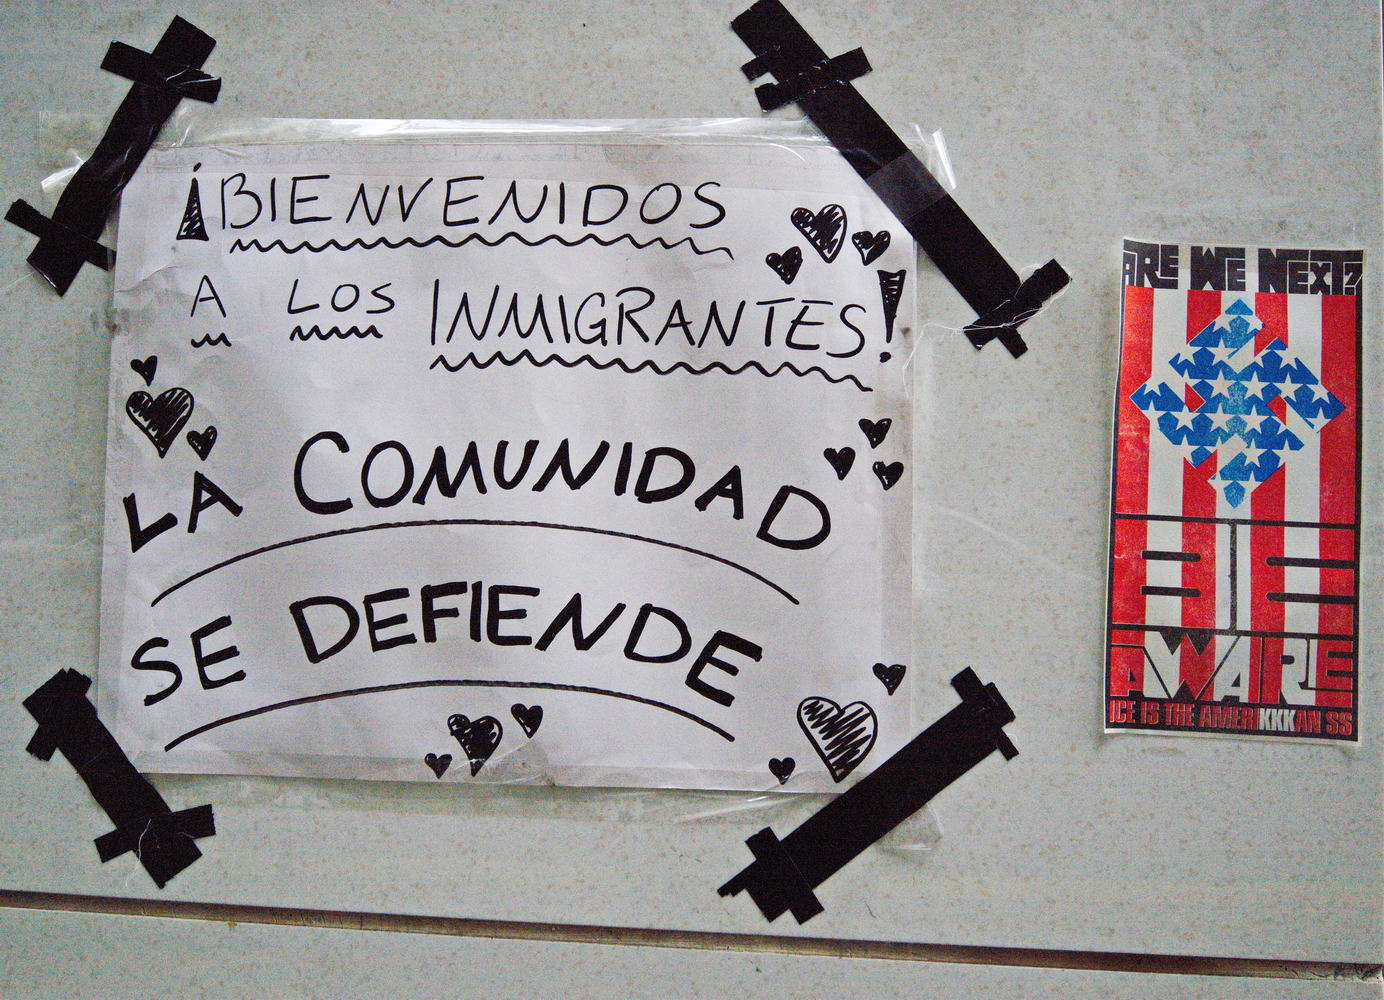 ¡BIENVENIDOS
A LOS INMIGRANTES!
LA COMUNIDAD
SE DEFIENDE
ARE WE NEXT?
BE
AWARE
ICE IS THE AMERIKKKAN SS